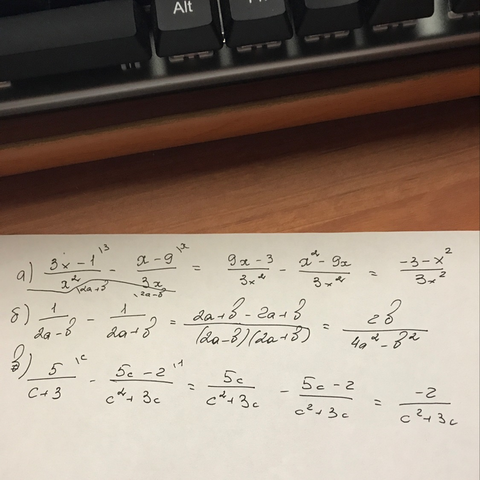 Alt
а) (3x-1)/x² \3 - (x-9)/3x \x = (9x-3)/3x² - (x²-9x)/3x² = (-3-x²)/3x²
б) 1/(2a-b) \2a+b - 1/(2a+b) \2a-b = (2a+b-2a+b)/((2a-b)(2a+b)) = 2b/(4a²-b²)
в) 5/(c+3) \c - (5c-2)/(c²+3c) \1 = 5c/(c²+3c) - (5c-2)/(c²+3c) = -2/(c²+3c)